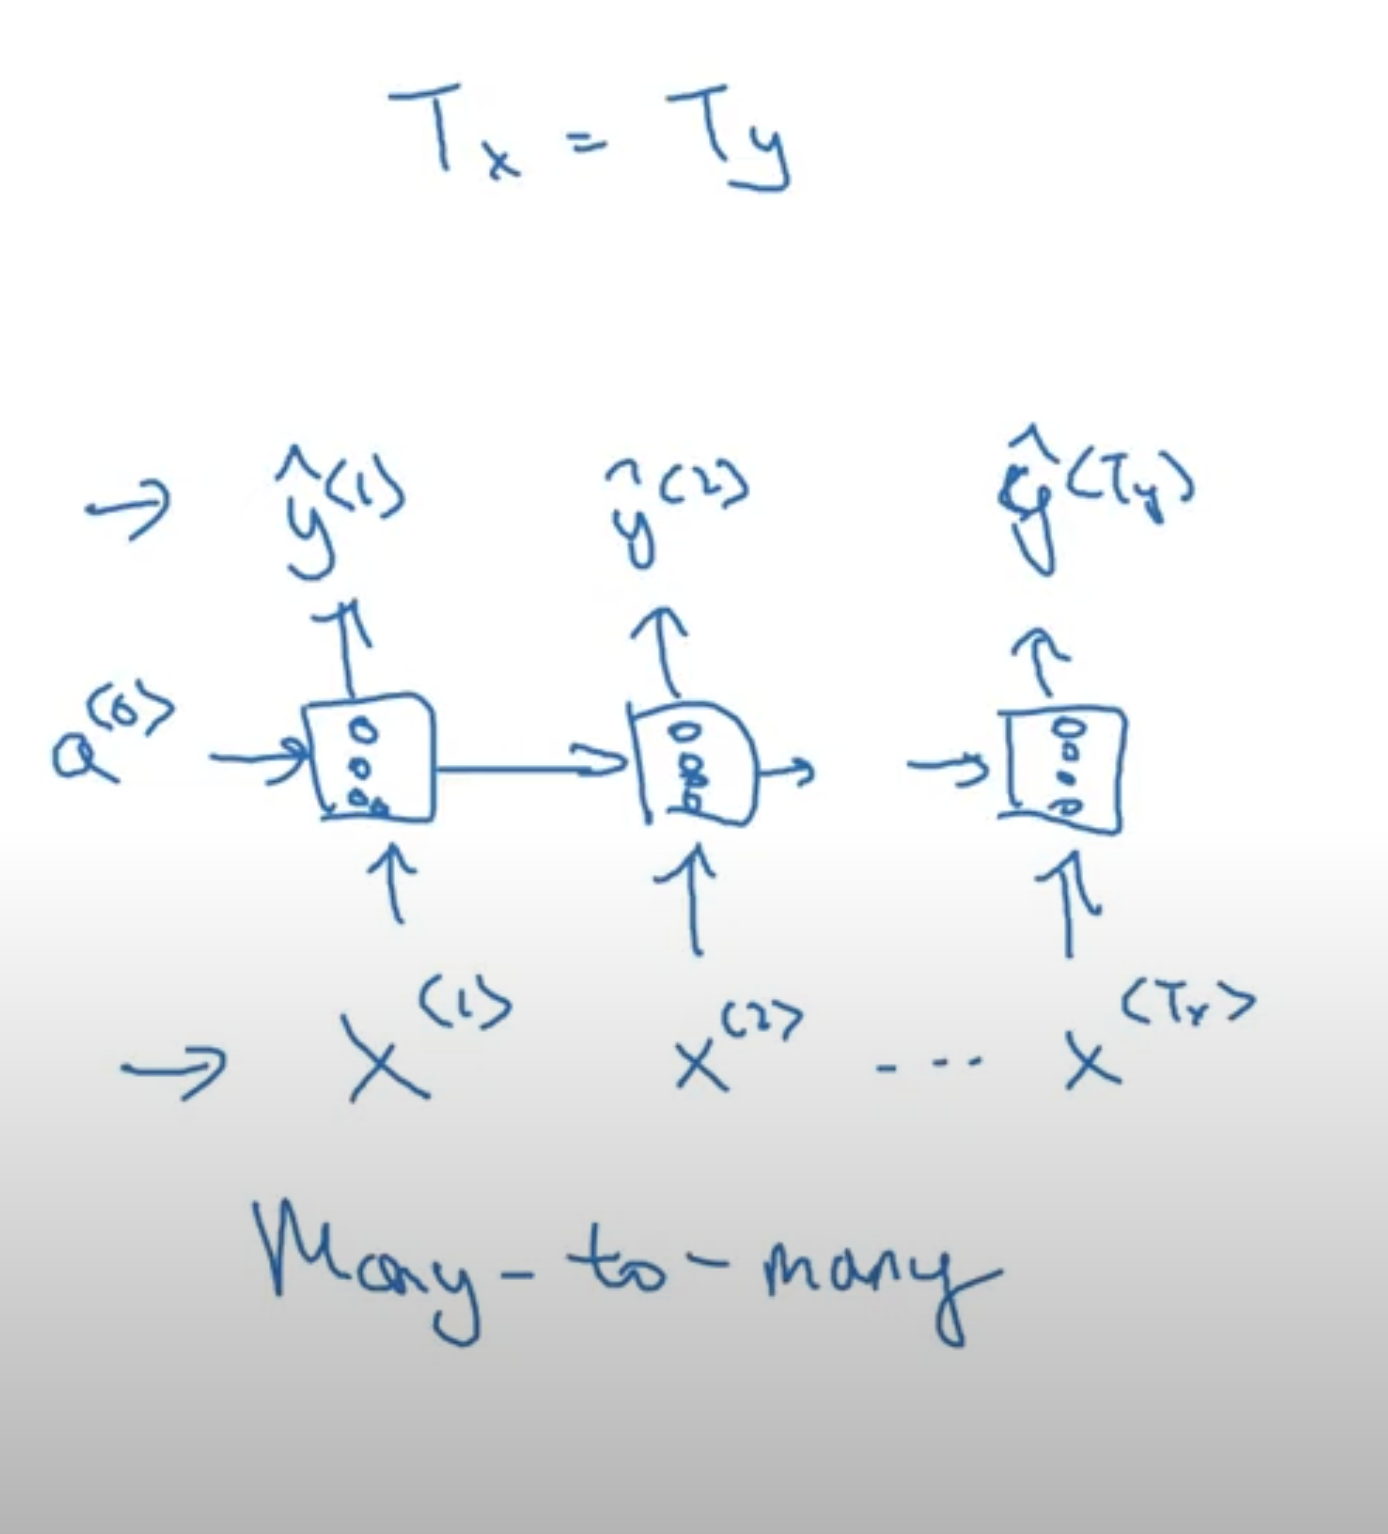 Tx = Ty
→ ŷ⟨1⟩ ŷ⟨2⟩ ŷ⟨Ty⟩
a⟨0⟩
→ x⟨1⟩ x⟨2⟩ --- x⟨Tx⟩
Many-to-many